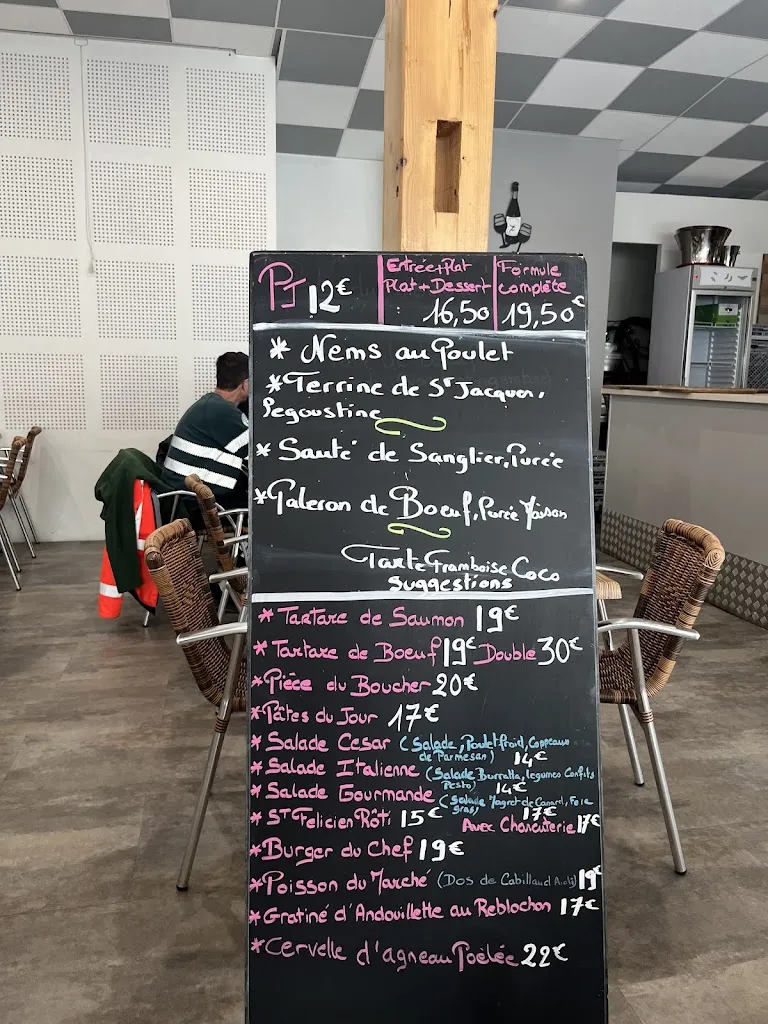 PJ 12€
Entrée+Plat
Plat+Dessert
16,50
Formule
complète
19,50€
* Nems au Poulet
* Terrine de St Jacques,
Segoustine
* Sauté de Sanglier, Purée
* Paleron de Boeuf, Purée Maison
Tarte Framboise Coco
Suggestions
* Tartare de Saumon 19€
* Tartare de Boeuf 19€ Double 30€
* Pièce du Boucher 20€
* Pâtes du Jour 17€
* Salade Cesar (Salade, Poulet froid, Coppeaux
de Parmesan) 14€
* Salade Italienne (Salade Burratta, legumes Confits
Pesto) 14€
* Salade Gourmande (Salade Magret de Canard, Foie
gras) 17€
* St Felicien Rôti 15€ Avec Charcuterie 17€
* Burger du Chef 19€
* Poisson du Marché (Dos de Cabillaud Aïoli) 19€
* Gratiné d'Andouillette au Reblochon 17€
* Cervelle d'agneau Poêlée 22€